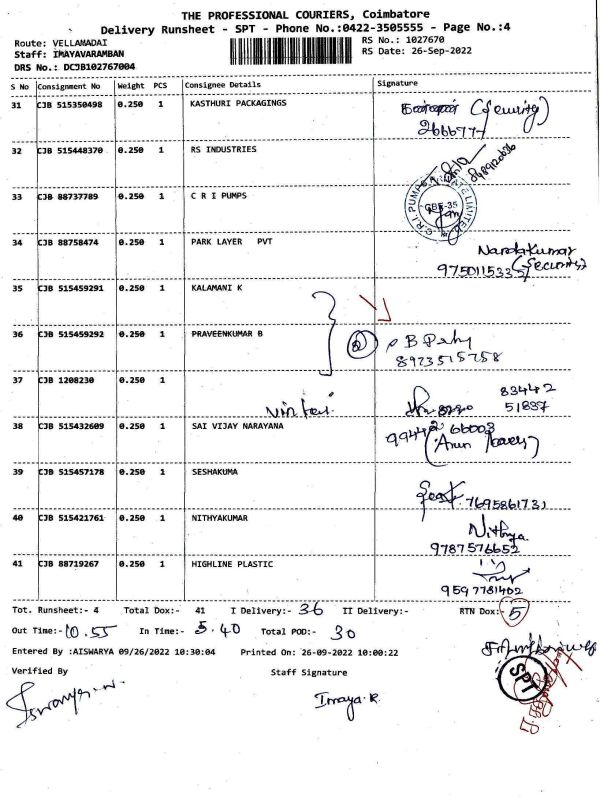 THE PROFESSIONAL COURIERS, Coimbatore
Delivery Runsheet - SPT - Phone No.:0422-3505555 - Page No.:4
Route: VELLAMADAI
RS No.: 1027670
Staff: IMAYAVARAMBAN
RS Date: 26-Sep-2022
DRS No.: DCJB102767004
S No Consignment No Weight PCS Consignee Details Signature
31 CJB 515350498 0.250 1 KASTHURI PACKAGINGS
(Security)
266677
32 CJB 515448370 0.250 1 RS INDUSTRIES
33 CJB 88737789 0.250 1 C R I PUMPS
C.R.I. PUMPS PRIVATE LIMITED
CBE-35
34 CJB 88758474 0.250 1 PARK LAYER PVT
Nandakumar
(Security)
35 CJB 515459291 0.250 1 KALAMANI K
36 CJB 515459292 0.250 1 PRAVEENKUMAR B
2
8923515258
37 CJB 1208230 0.250 1
83442
51837
38 CJB 515432609 0.250 1 SAI VIJAY NARAYANA
99442 66003
39 CJB 515457178 0.250 1 SESHAKUMA
7695861731
40 CJB 515421761 0.250 1 NITHYAKUMAR
Nithya
9787576652
41 CJB 88719267 0.250 1 HIGHLINE PLASTIC
9597781402
Tot. Runsheet:- 4 Total Dox:- 41 I Delivery:- 36 II Delivery:- RTN Dox:- 5
Out Time:- 10.55 In Time:- 5.40 Total POD:- 30
Entered By :AISWARYA 09/26/2022 10:30:04 Printed On: 26-09-2022 10:00:22
Verified By Staff Signature
SPT
Imaya.R